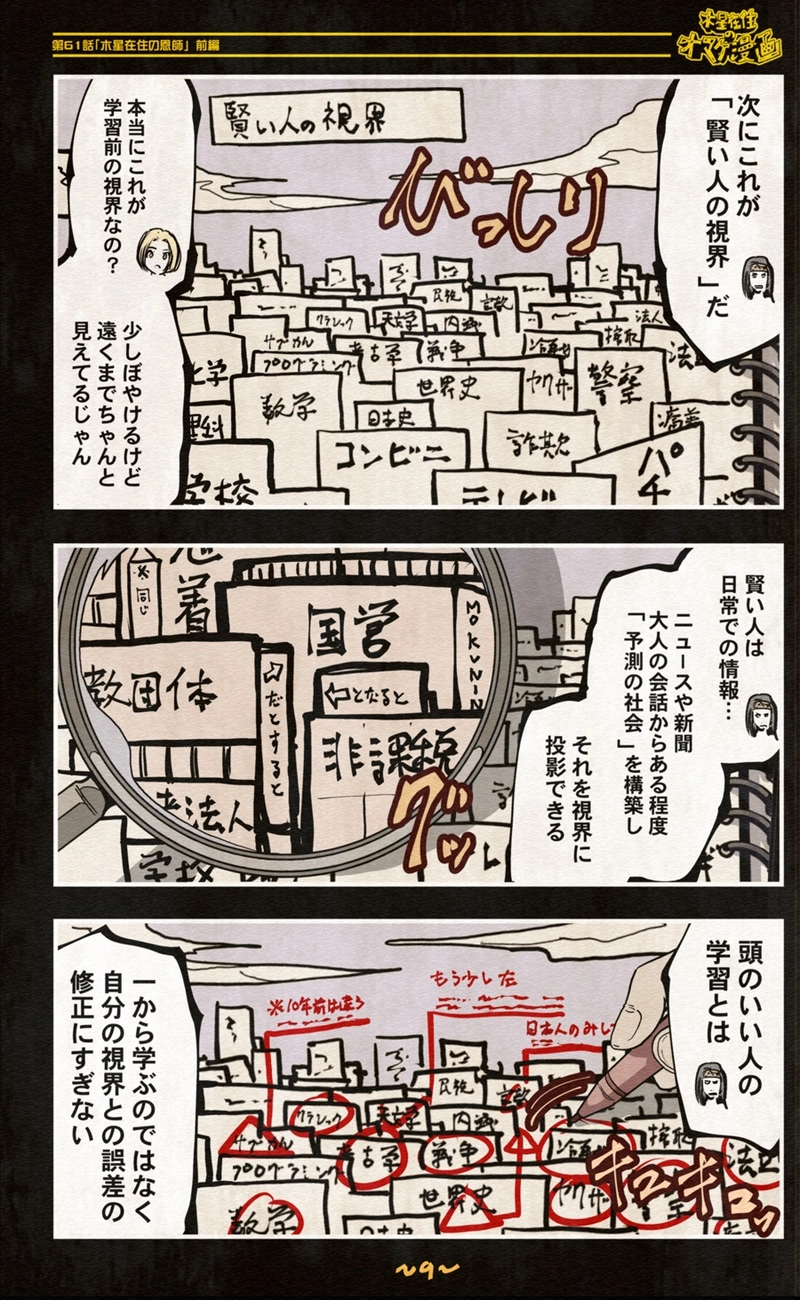 第61話「木星在住の恩師」 前編
木星在住
オマケ漫画
次にこれが
「賢い人の視界」だ
賢い人の視界
びっしり
本当にこれが
学習前の視界なの?
少しぼやけるけど
遠くまでちゃんと
見えてるじゃん
民族
宗教
クラシック
天文学
内臓
法人
サブカン
考古学
戦争
搾取
プログラミング
世界史
ヤクザ
警察
化学
数学
日本史
詐欺
理科
コンビニ
パチ
学校
テレビ
賢い人は
日常での情報…
ニュースや新聞
大人の会話からある程度
「予測の社会」を構築し
それを視界に
投影できる
※同じ
着
国営
MOKUNIN
教団体
⇦だとすると
⇦となると
非課税
法人
学校
グッ
頭のいい人の
学習とは
一から学ぶのではなく
自分の視界との誤差の
修正にすぎない
※10年前は違う
もう少し左
日本人のみ
民族
宗教
クラシック
天文学
内臓
サブカン
考古学
戦争
搾取
プログラミング
世界史
ヤクザ
数学
日本史
キュキュッ
~9~